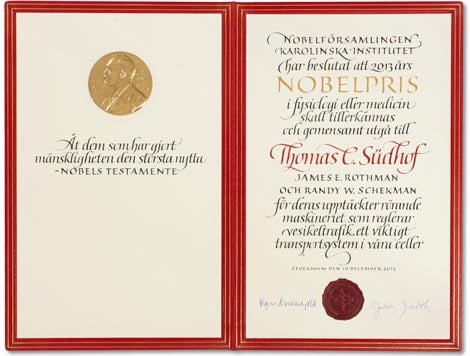 Åt dem som har gjort
mänskligheten den största nytta
-NOBELS TESTAMENTE
NOBELFÖRSAMLINGEN
KAROLINSKA INSTITUTET
har beslutat att 2013 års
NOBELPRIS
i fysiologi eller medicin
skall tillerkännas
och gemensamt utgå till
Thomas C. Südhof
JAMES E. ROTHMAN
OCH RANDY W. SCHEKMAN
för deras upptäckter rörande
maskineriet som reglerar
vesikeltrafik, ett viktigt
transportsystem i våra celler
STOCKHOLM DEN 10 DECEMBER 2013